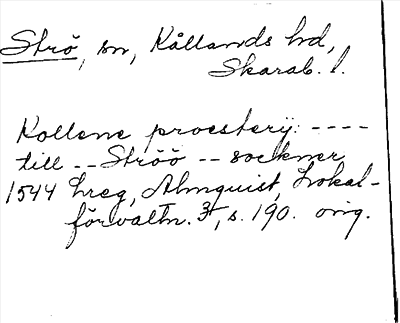 Strö, sn, Kållands hd,
Skarab. l.
Kollene proesterij: ----
till -- Ströö -- sockner
1544 hreg, Almquist, Lokal-
förvaltn. 3, s. 190. orig.